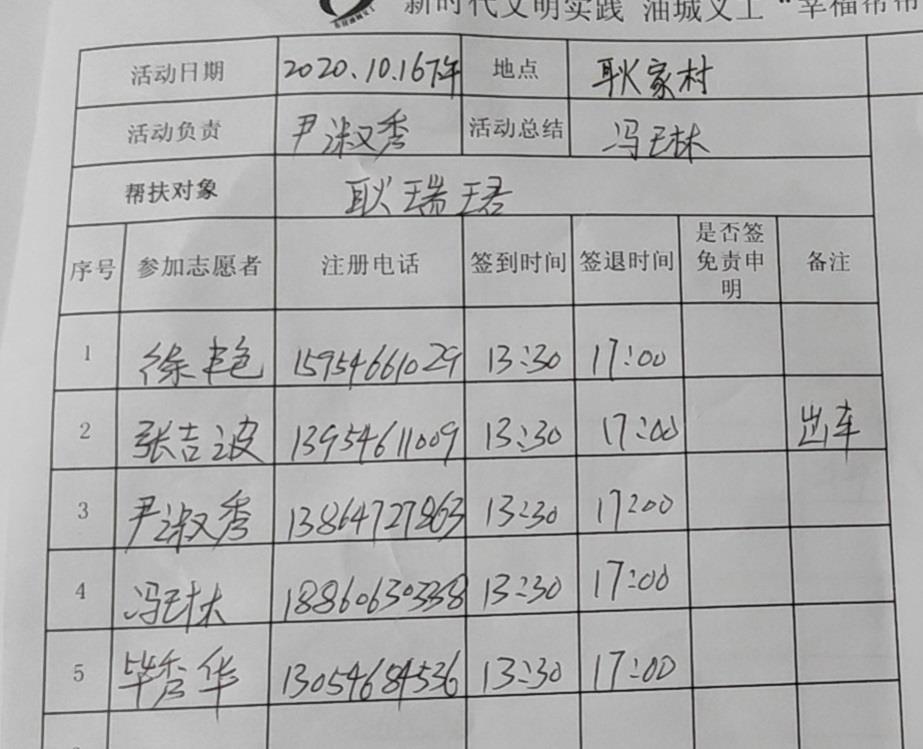 新时代文明实践 油城义工“幸福帮帮
活动日期 2020.10.16下午 地点 耿家村
活动负责 尹淑秀 活动总结 冯玉林
帮扶对象 耿瑞珺
序号 参加志愿者 注册电话 签到时间 签退时间 是否签免责申明 备注
1 徐艳 15954661029 13:30 17:00
2 张吉波 13954611009 13:30 17:00 出车
3 尹淑秀 13864727863 13:30 17:00
4 冯玉林 18860630338 13:30 17:00
5 毕秀华 13054684536 13:30 17:00